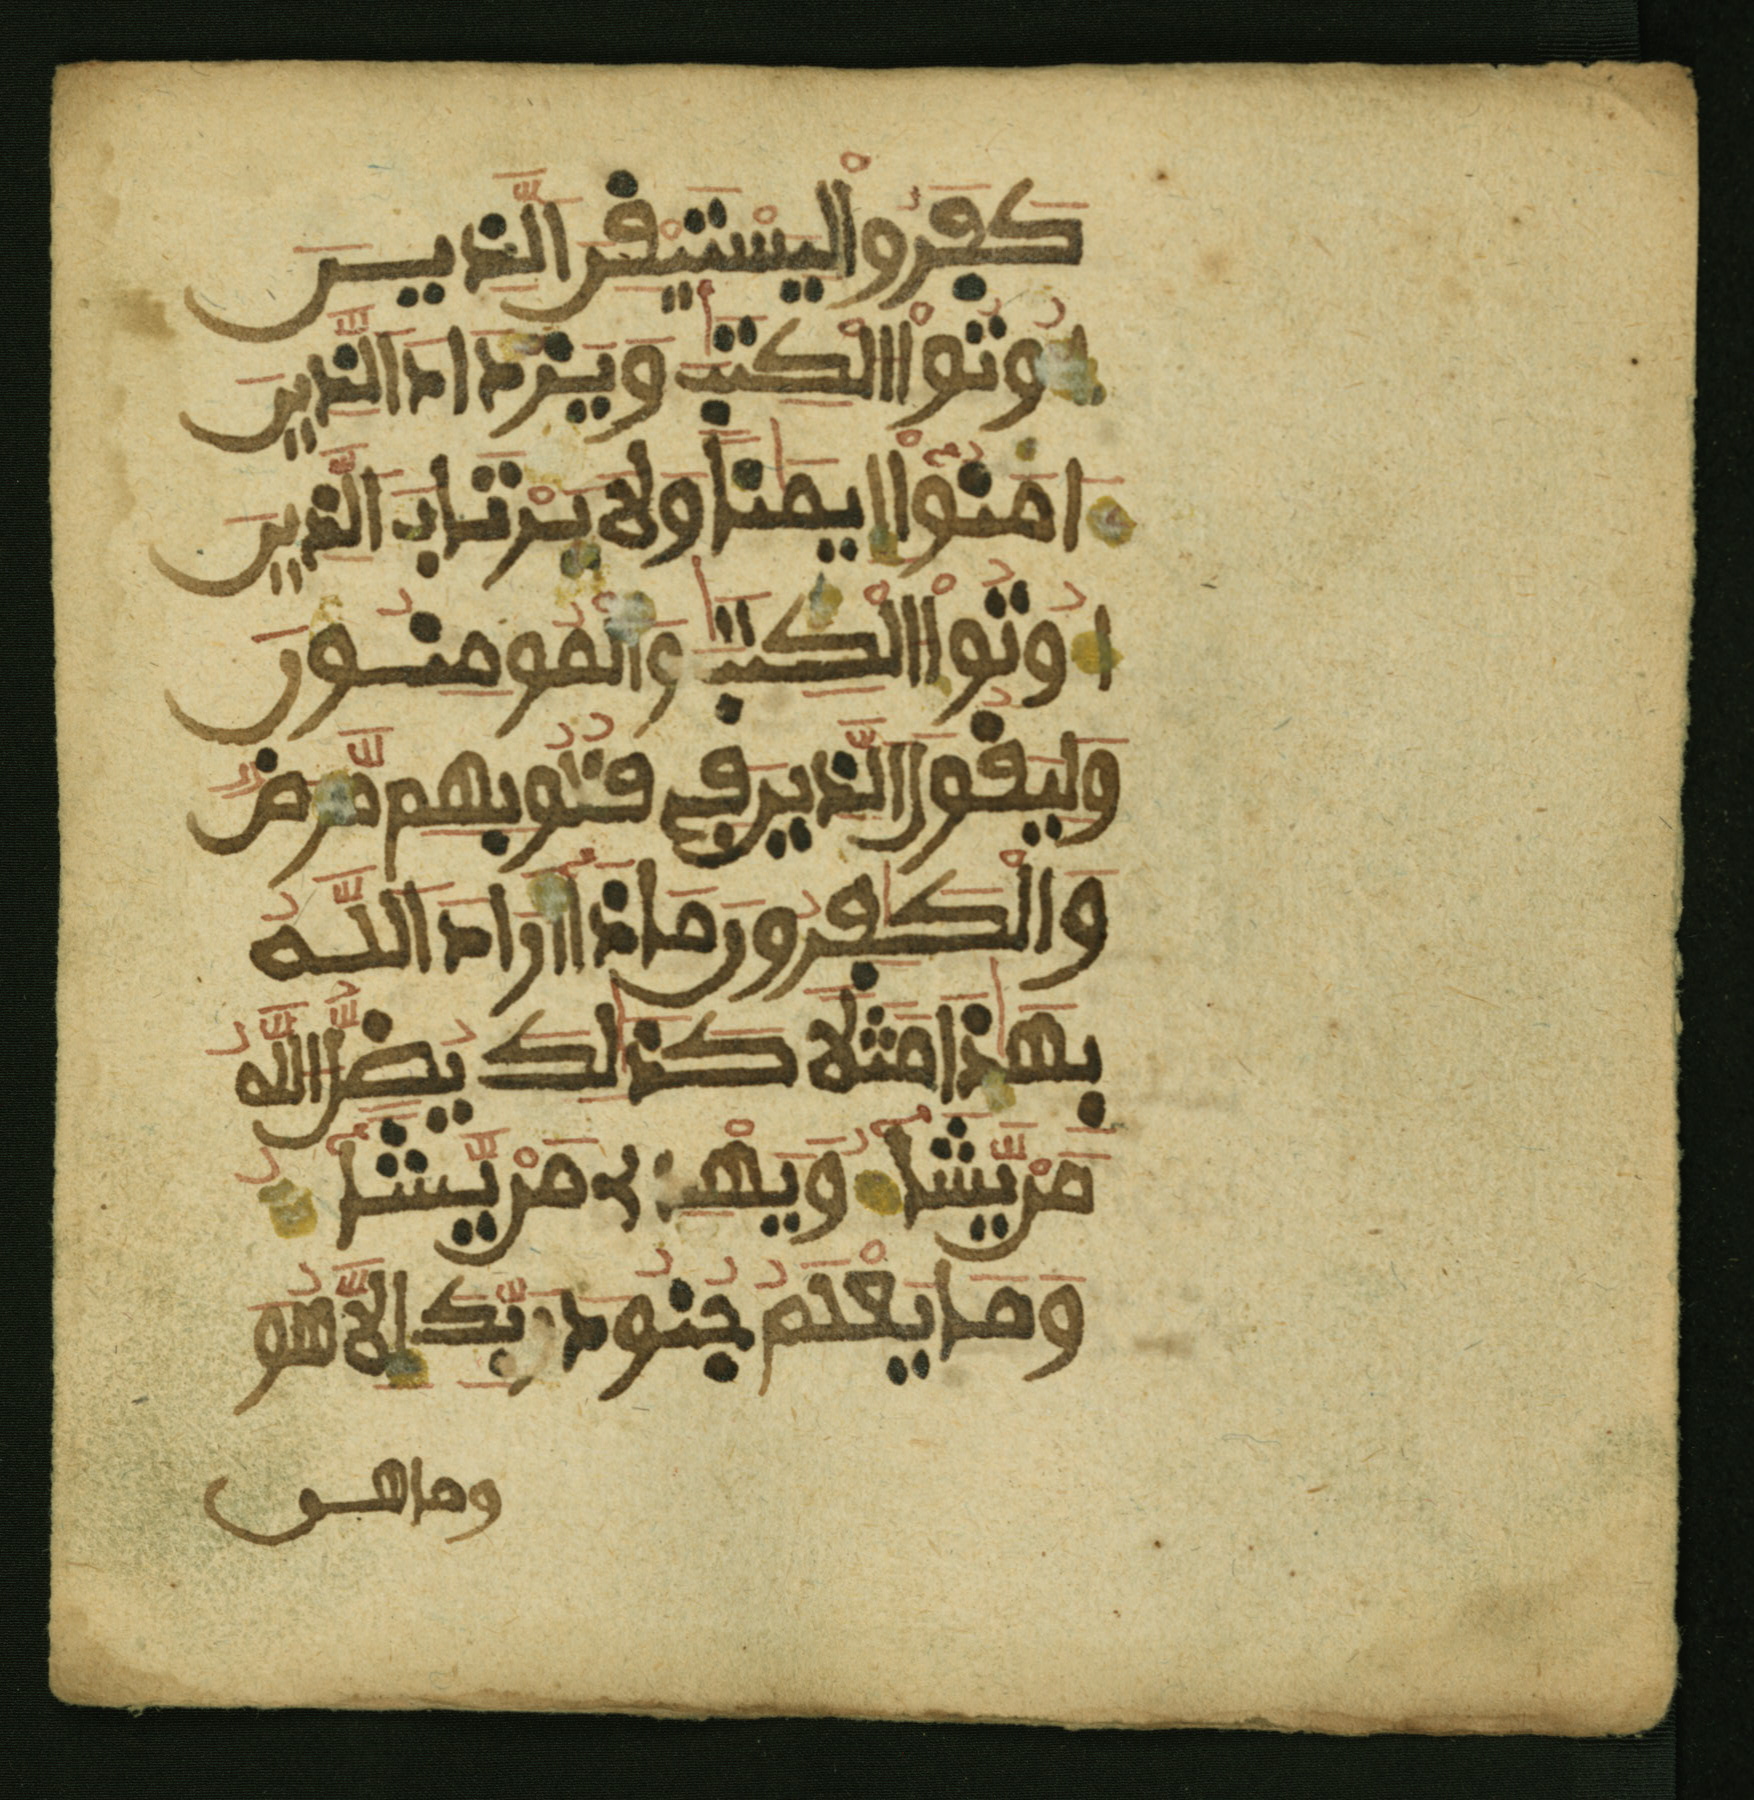 كَفَرُواْ لِيَسْتَيْقِنَ الَّذِينَ
اُوتُواْ الْكِتَٰبَ وَيَزْدَادَ الَّذِينَ
ءَامَنُوٓاْ إِيمَٰناً وَلَا يَرْتَابَ الَّذِينَ
أُوتُواْ الْكِتَٰبَ وَالْمُومِنُونَ
وَلِيَقُولَ الَّذِينَ فِي قُلُوبِهِم مَّرَضٌ
وَالْكَٰفِرُونَ مَاذَا أَرَادَ اللَّهُ
بِهَٰذَا مَثَلاً كَذَٰلِكَ يُضِلُّ اللَّهُ
مَنْ يَّشَآءُ وَيَهْدِے مَنْ يَّشَآءُ
وَمَا يَعْلَمُ جُنُودَ رَبِّكَ إِلَّا هُوَ
وما هي